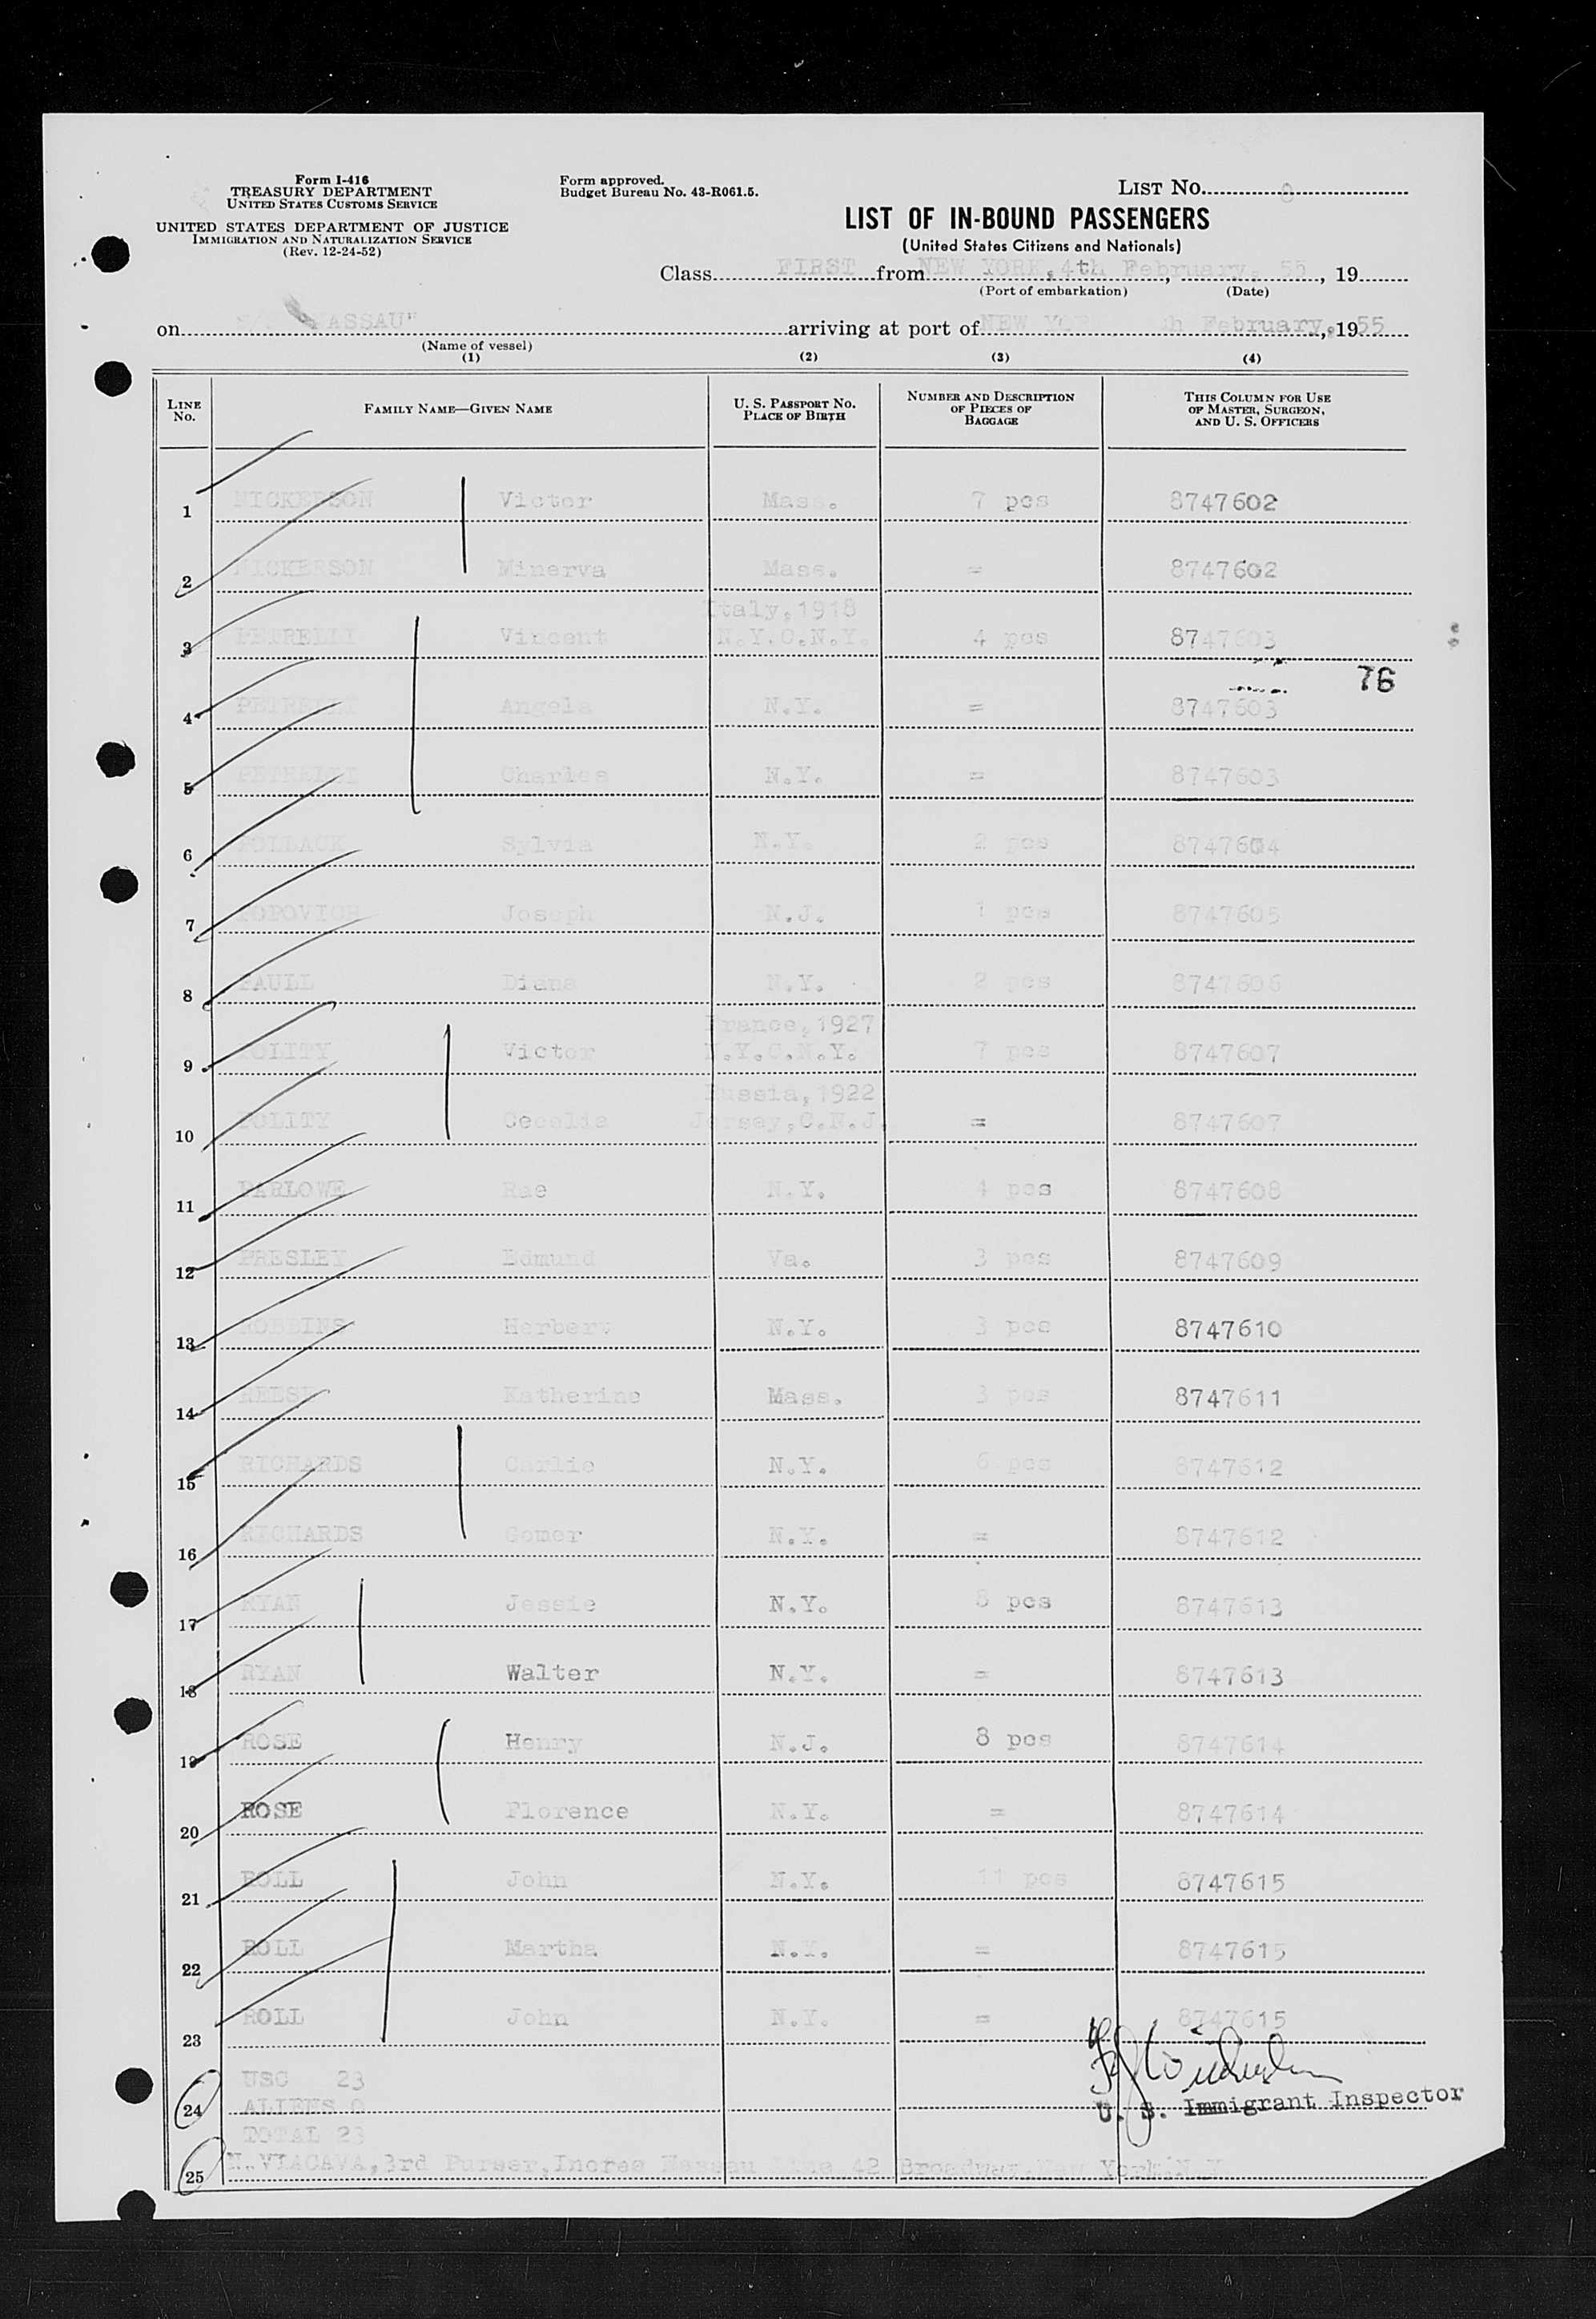 Form I-416
TREASURY DEPARTMENT
UNITED STATES CUSTOMS SERVICE
UNITED STATES DEPARTMENT OF JUSTICE
IMMIGRATION AND NATURALIZATION SERVICE
(Rev. 12-24-52)
Form approved.
Budget Bureau No. 43-R061.5.
LIST No.
LIST OF IN-BOUND PASSENGERS
(United States Citizens and Nationals)
Class FIRST from NEW YORK, 4th February, 55, 19
(Port of embarkation) (Date)
on NASSAU" arriving at port of NEW YORK February, 1955
(Name of vessel)
(1) (2) (3) (4)
LINE No. FAMILY NAME—GIVEN NAME U. S. PASSPORT NO. PLACE OF BIRTH NUMBER AND DESCRIPTION OF PIECES OF BAGGAGE THIS COLUMN FOR USE OF MASTER, SURGEON, AND U. S. OFFICERS
1 NICKERSON Victor Mass. 7 pcs 8747602
2 NICKERSON Minerva Mass. = 8747602
Italy,1918
3 PETRELLI Vincent N.Y.C.N.Y. 4 pcs 8747603
76
4 PETRELLI Angela N.Y. = 8747603
5 PETRELLI Charles N.Y. = 8747603
6 POLLACK Sylvia N.Y. 2 pcs 8747604
7 POPOVICH Joseph N.J. 1 pcs 8747605
8 PAULL Diana N.Y. 2 pcs 8747606
France,1927
9 POLITY Victor N.Y.C.N.Y. 7 pcs 8747607
Russia,1922
10 POLITY Cecelia Jersey,C.N.J. = 8747607
11 PARLOWE Rae N.Y. 4 pcs 8747608
12 PRESLEY Edmund Va. 3 pcs 8747609
13 ROBBINS Herbert N.Y. 3 pcs 8747610
14 REESE Katherine Mass. 3 pcs 8747611
15 RICHARDS Carlie N.Y. 6 pcs 8747612
16 RICHARDS Gomer N.Y. = 8747612
17 RYAN Jessie N.Y. 8 pcs 8747613
18 RYAN Walter N.Y. = 8747613
19 ROSE Henry N.J. 8 pcs 8747614
20 ROSE Florence N.Y. = 8747614
21 ROLL John N.Y. 11 pcs 8747615
22 ROLL Martha N.Y. = 8747615
23 ROLL John N.Y. = 8747615
USC 23
24 ALIENS 0
U. S. Immigrant Inspector
TOTAL 23
25 N. VIACAVA, 3rd Purser, Incres Nassau Line 42 Broadway, New York N.Y.